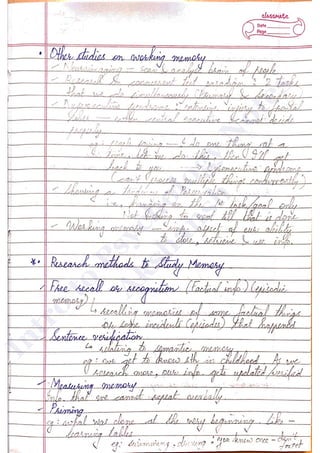 classmate
Date
Page
Other studies on working memory
Neuroimaging — scan & analyse brain of people
Research & concurrent task 2 tasks
that we do simultaneously Primary & Secondary
Dysexecutive syndrome extensive injury to frontal
lobes — central executive cannot decide
properly
eg: people saying — do one thing at a
time. let me do this, then I'll get
back to you → Dysexecutive syndrome
(can't process multiple things concurrently)
Showing a
i.e., on the 1st task/goal only
Not that is done
Working memory — imp. aspect of our ability
to store, retrieve & use info.
*. Research methods to Study Memory
Free recall or recognition (Factual info) (episodic
memory)
↳ recalling memories of some factual things
or some incidents (episodes) that happened
Sentence verification
↳ relating to semantic memory
eg: we get to know sth in childhood. As we
research more, our info. gets updated/verified
Measuring memory
Info. that we cannot repeat overtly
Priming
eg: what was done at the very beginning. like -
learning tables
eg: swimming, driving: you knew once - don't
forget